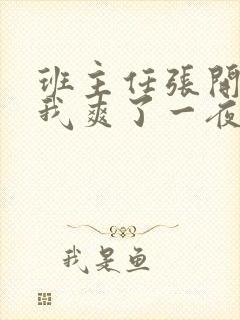 班主任张開
我爽了一夜
我是鱼